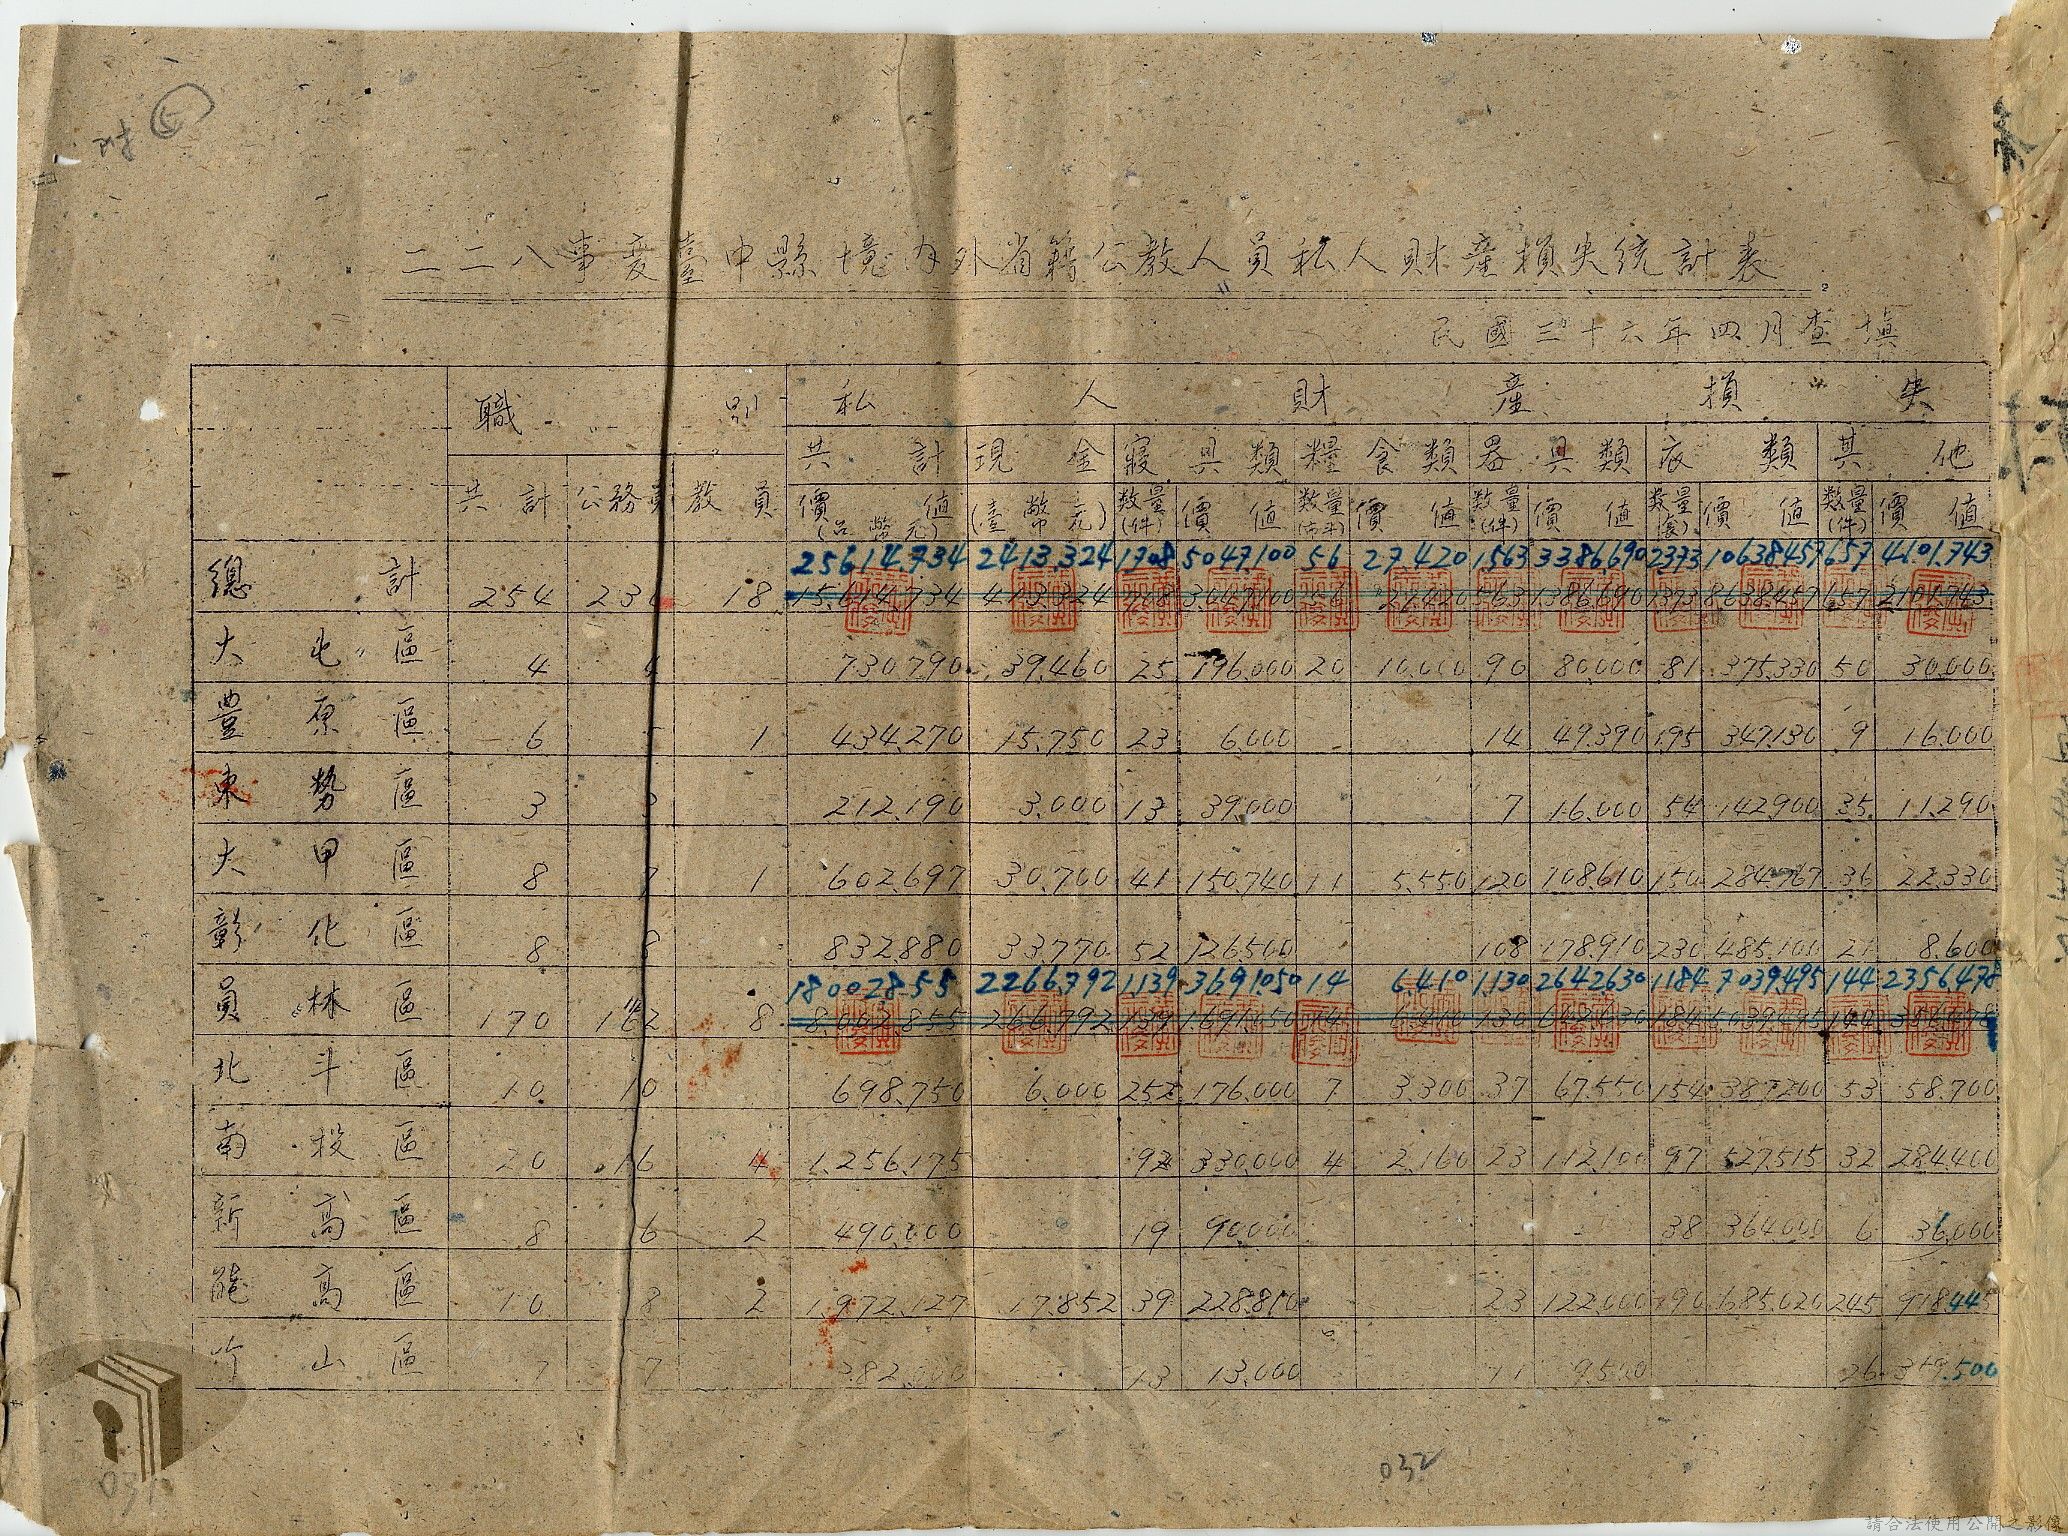 附 五
二二八事變臺中縣境內外省籍公教人員私人財產損失統計表
民國三十六年四月查填
職別 私人財產損失
共計 現金 寢具類 糧食類 器具類 衣類 其他
共計 公務員 教員 價值(台幣元) (臺幣元) 数量(件) 價值 数量(市斗) 價值 数量(件) 價值 数量(套) 價值 数量(件) 價值
25614.734 2413.324 1708 5047.100 56 27.420 1563 3386.690 2373 10638457 657 4.101.743
總計 254 18 15.114.734 413.324 3.047.100 563 1386.690 1373 8.638457 657 2101.743
大屯區 4 4 730.790 39.460 25 196.000 20 10.000 90 80.000 81 375.330 50 30.000
豐原區 6 1 434.270 15.750 23 6.000 14 49.390 195 347.130 9 16.000
東勢區 3 3 212.190 3.000 13 39.000 7 16.000 54 142.900 35 11.290
大甲區 8 7 1 602.697 30.700 41 150.740 11 5.550 120 108.610 150 284.767 36 22.330
彰化區 8 8 832.880 33.770 52 126.500 108 178.910 230 485.100 21 8.600
18002855 2266.792 1.139 3691.050 14 6.410 1.130 2642630 1184 7039.495 144 2356.478
員林區 170 162 8 8.002.855 266.792 139 14 130 184 144
北斗區 10 10 698.750 6.000 252 176.000 7 3.300 37 67.550 154 387.200 53 58.700
南投區 20 16 4 1.256.175 92 330.000 4 2.160 23 112.100 97 527.515 32 284.400
新高區 8 6 2 490.000 19 90.000 38 364.000 6 36.000
能高區 10 8 2 1.972.127 17.852 39 228.810 23 122.000 190 685.020 245 918.445
竹山區 7 7 382.000 13 13.000 11 9.500 26 359.500
031
032
請合法使用公開之影像